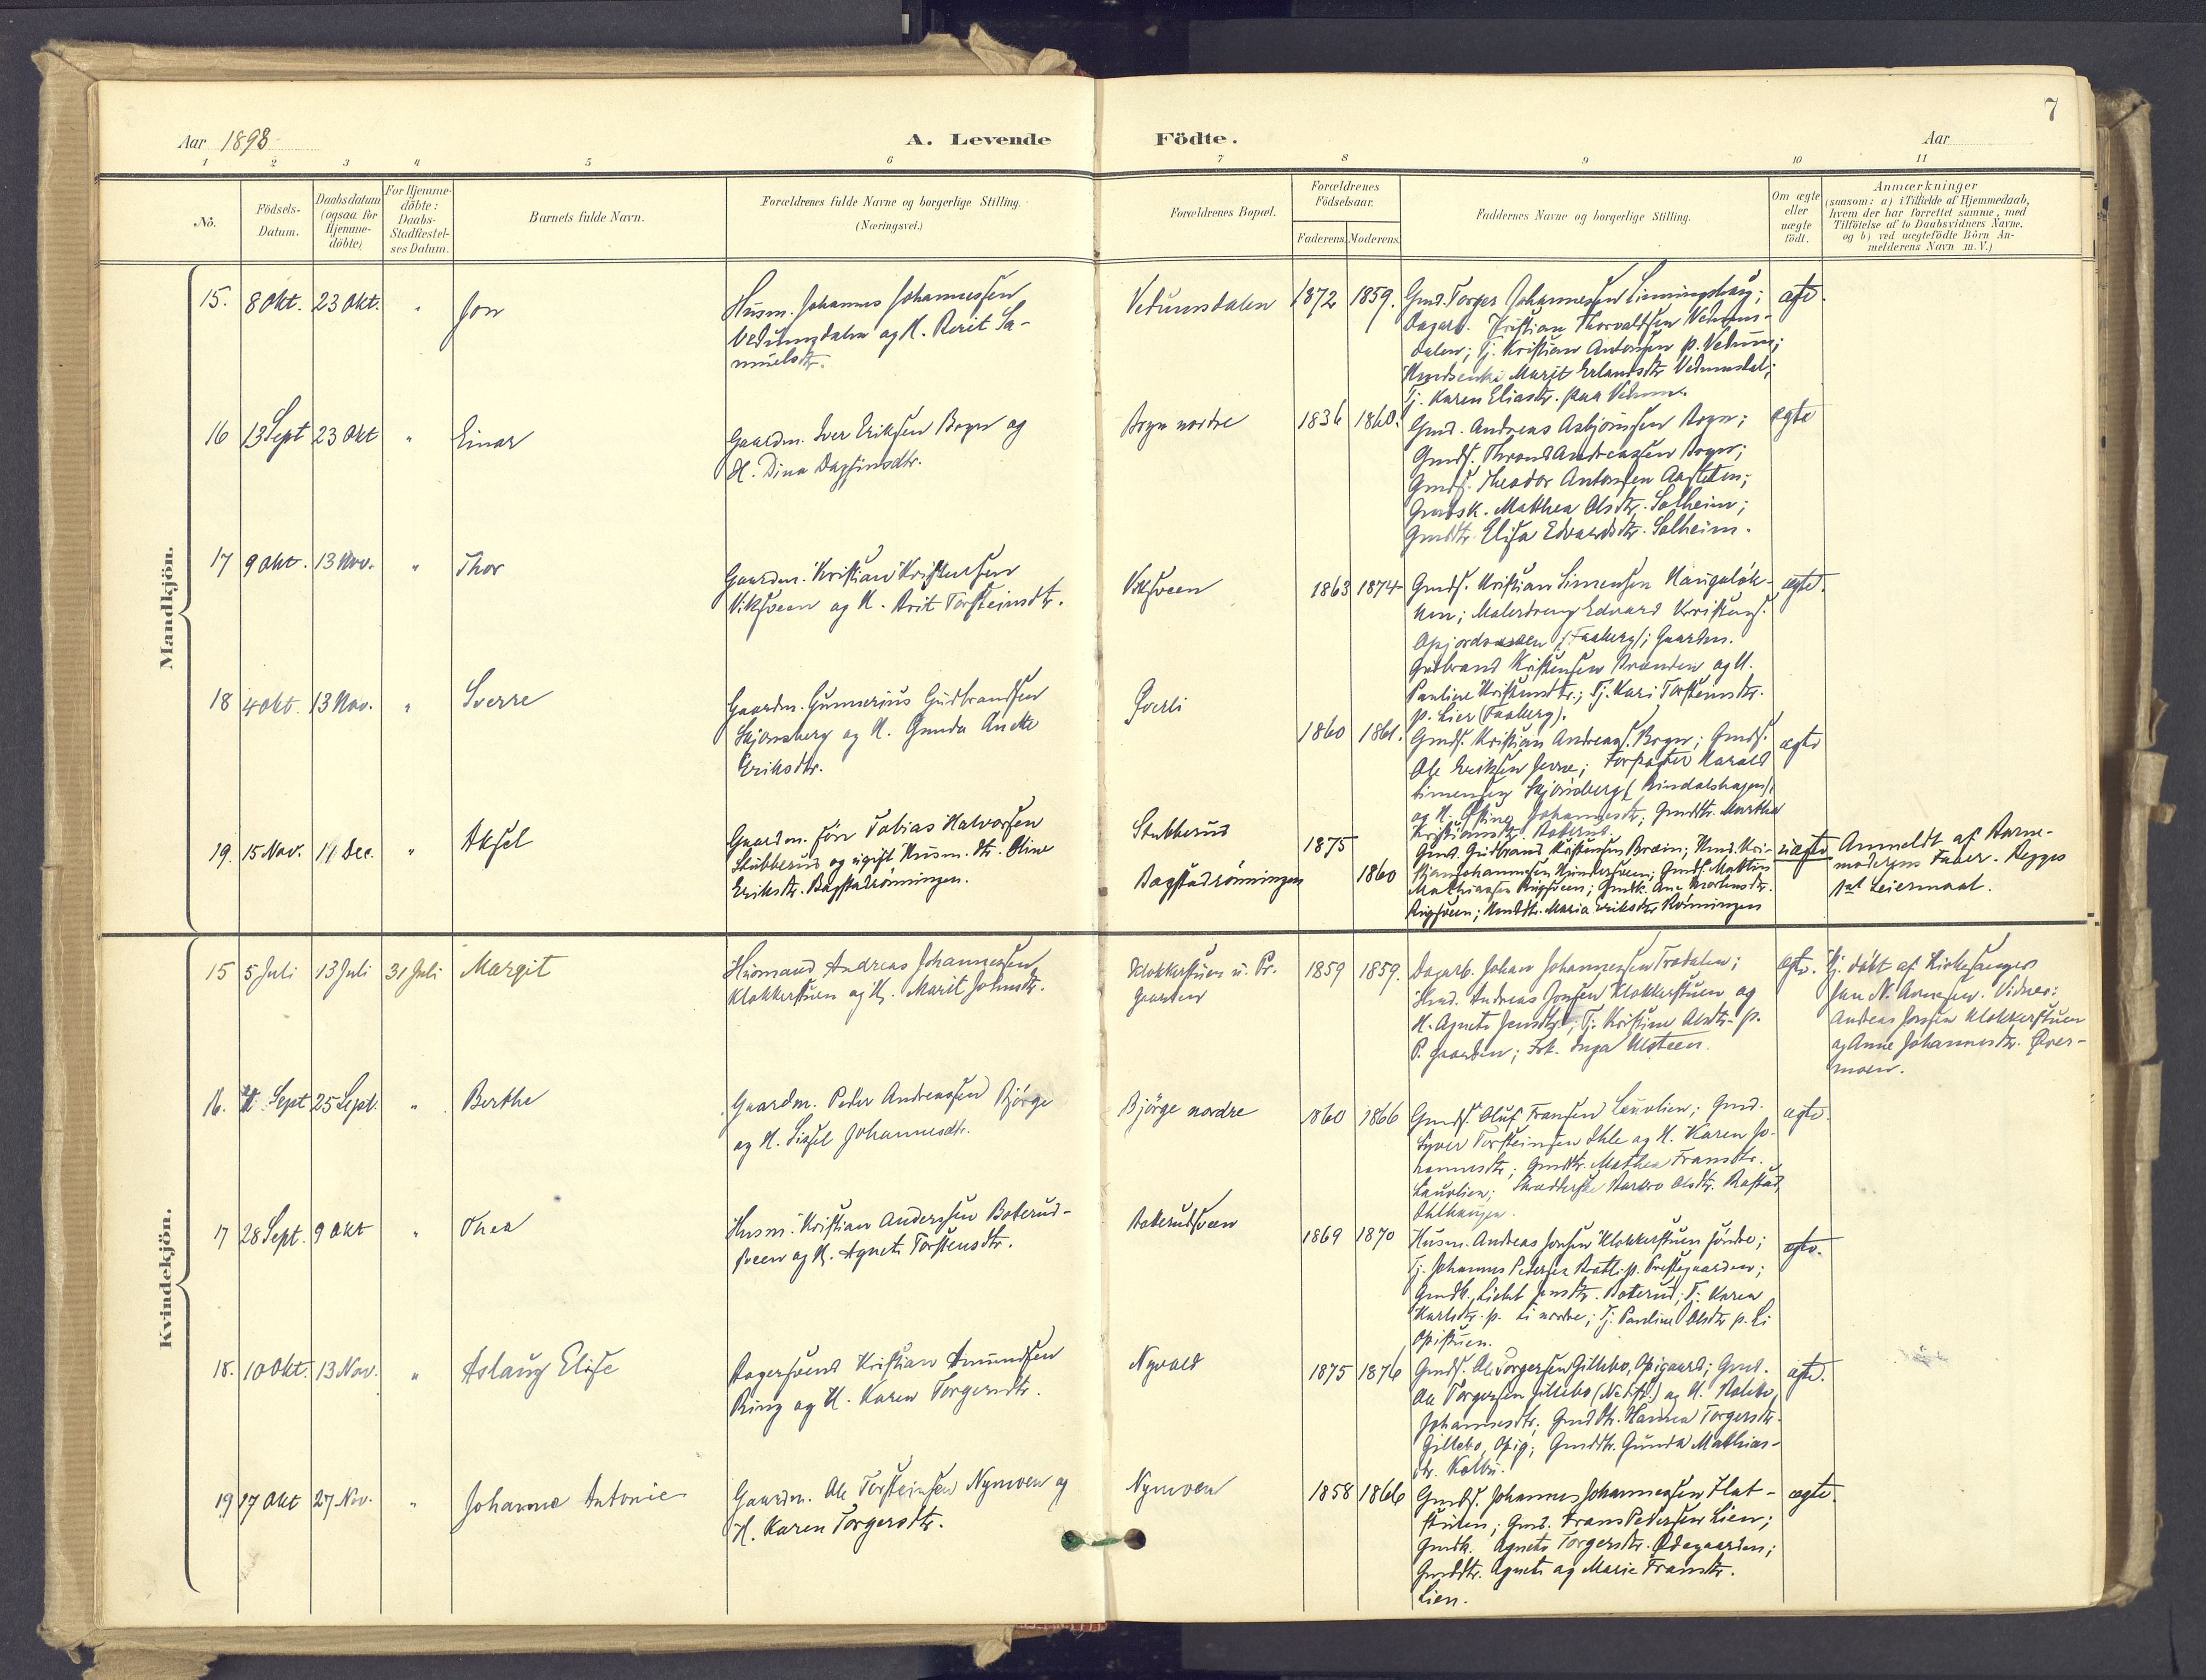 7
Aar 1898
A. Levende Födte.
Aar
1 2 3 4 5 6 7 8 9 10 11
No.
Födsels-
Datum.
Daabsdatum
(ogsaa for
Hjemme-
döbte)
For Hjemme-
döbte:
Daabs-
Stadfæstel-
ses Datum.
Barnets fulde Navn.
Forældrenes fulde Navne og borgerlige Stilling.
(Næringsvei.)
Forældrenes Bopæl.
Forældrenes
Födselsaar.
Faderens. Moderens.
Faddernes Navne og borgerlige Stilling.
Om ægte
eller
uægte
födt.
Anmærkninger
(saasom: a) i Tilfælde af Hjemmedaab,
hvem der har forrettet samme, med
Tilföielse af to Daabsvidners Navne.
og b) ved uægtefödte Börn An-
melderens Navn m. V.)
Mandkjön.
15. 8 Okt. 23 Okt. " Jon
Husm. Johannes Johannessen
Vedumsdalen og H. Berit Sa-
muelsdtr.
Vedumsdalen 1872 1859.
Gmd. Torger Johannessen
Dagarb. Kristian Thorvaldsen Vedums-
dalen; Tj. Kristian Antonsen p. Vedum;
Marit Erlandsdtr Vedumsdal;
Tj. Karen Eliasdtr. paa Vedum.
ægte.
16 13 Sept 23 Okt " Einar
Gaardm. Iver Eriksen Bogn og
H. Dina Dagfinsdtr.
Bogn nordre 1836 1860.
Gmd. Andreas Asbjörnsen Bogn;
Gmds. Thrond Andreassen Bogn;
Gmds. Theodor Antonsen
Gmdsk. Mathea Olsdtr. Solheim;
Gmddtr. Elisa Edvardsdtr. Solheim.
ægte
17 9 Okt. 13 Nov. " Thor
Gaardm. Kristian Kristensen
Viksveen og H. Brit Torsteinsdtr.
Viksveen 1863 1874
Gmds. Kristian Simensen Haugalök-
ken; Malerdreng Edvard Kristens.
(Faaberg); Gaardm.
Gudbrand Kristensen Branden og H.
Pauline Kristensdtr.; Tj. Kari Torsteinsdtr.
p. Lier (Faaberg).
ægte.
18 4 Okt. 13 Nov. " Sverre
Gaardm. Gunnerius Gudbrandsen
Skjönsberg og H. Gunda Anette
Eriksdtr.
Överli
1860 1861.
Gmds. Kristian Andreass. Bogn; Gmds.
Ole Eriksen Forpagter Harald
Simensen Skjönsberg
og H. Johannesdtr; Gmddtr. Martha
Kristiansdtr. Boterud.
ægte
19. 15 Nov. 11 Dec. " Aksel
Gaardm. sön Tobias Halvorsen
Stubberud og ugift Husm. dtr. Oline
Eriksdtr. Bagstadrönningen.
Stubberud 1875
Bagstadrönningen 1860
Gmd. Gudbrand Kristensen Hmd. Kri-
stian Johannesen Gmds. Mathias
Mathiassen Gmdk. Ane Mortensdtr.
Hmddtr. Maria Eriksdtr. Rönningen
uægte
Anmeldt af Barne-
moderens Fader. Begges
1st Leiermaal.
Kvindekjön.
15 5 Juli 13 Juli 31 Juli Margit
Husmand Andreas Johannessen
Klokkerstuen og H. Marit Johnsdtr.
Klokkerstuen u. Pr.
gaarden
1859 1859.
Dagarb. Johan Johannessen Trodalen;
Hmd. Andreas Jonsen Klokkerstuen og
H. Agnete Jensdtr.; Tj. Kristine Olsdtr. p.
P. gaarden; Frk. Inga Ulsteen.
ægte.
Hj. döbt af Kirkesanger
Jan N. Arnesen. Vidner:
Andreas Jonsen Klokkerstuen
og Anne Johannesdtr. Över-
moen.
16. 11 Sept 25 Sept. " Berthe
Gaardm. Peder Andreassen Björge
og H. Sissel Johannesdtr.
Björge nordre 1860 1866
Gmds. Oluf Fransen Lauvlien; Gmd.
Syver Torsteinsen Ihle og H. Karen Jo-
hannesdtr; Gmddtr. Mathea Fransdtr.
Lauvlien; Barbro Olsdtr. Bastad,
ægte.
17 28 Sept. 9 Okt " Thea
Husm. Kristian Anderssen Boterud-
sveen og H. Agnete Torstensdtr.
Boterudsveen 1869 1870
Husm. Andreas Jonsen Klokkerstuen söndre;
Tj. Johannes Pedersen p. Prestegaarden;
Gmdk. Lisbet Jensdtr. Boterud; Tj. Karen
Karlsdtr. p. Li nordre; Tj. Pauline Olsdtr p. Li
Opistuen.
ægte.
18. 10 Okt. 13 Nov. " Aslaug Elise
Bagersvend Kristian Amundsen
Ring og H. Karen Torgersdtr.
Nyvold 1875 1876
Gmds. Ole Torgersen Gillebo, Opigaard; Gmd.
Ole Torgersen Gillebo og H.
Johannesdtr; Gmddtr. Hanna Torgersdtr.
Gillebo, Opig; Gmddtr. Gunda Mathias-
dtr. Kalbu.
ægte.
19 17 Okt 27 Nov. " Johanne Antonie
Gaardm. Ole Torsteinsen Nymoen og
H. Karen Torgersdtr.
Nymoen 1858 1866
Gmds. Johannes Johannessen Flat-
stuen; Gmd. Frans Pedersen Lien;
Gmdk. Agnete Torgersdtr. Ödegaarden;
Gmddtr. Agnete og Marie Fransdtr.
Lien.
ægte.